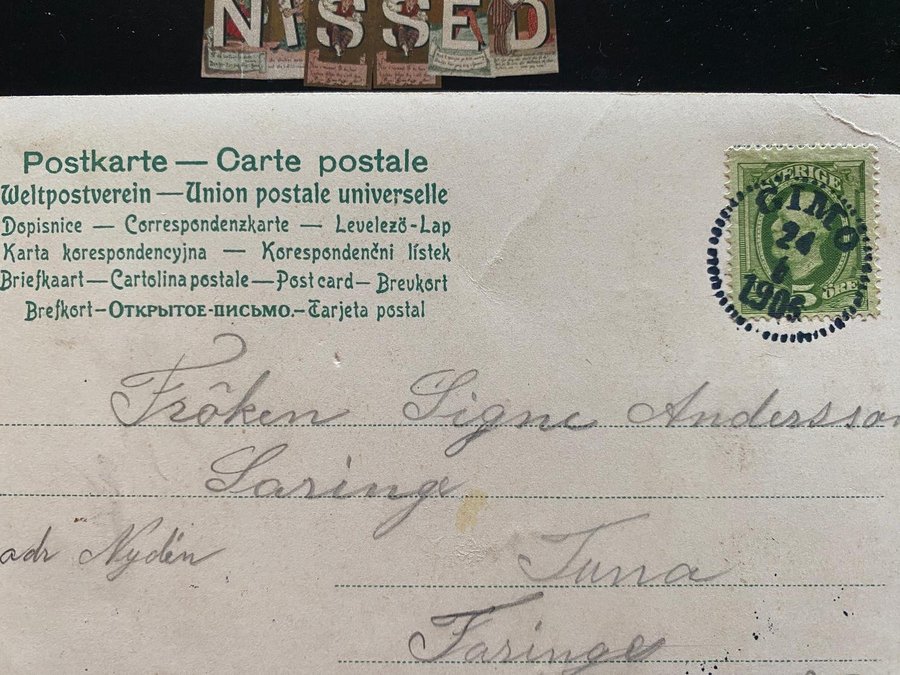 NISSED
Postkarte — Carte postale
Weltpostverein — Union postale universelle
Dopisnice — Correspondenzkarte — Levelező-Lap
Karta korespondencyjna — Korespondenční lístek
Briefkaart — Cartolina postale — Post card — Brevkort
Brefkort — ОТКРЫТОЕ-ПИСЬМО. — Tarjeta postal
SVERIGE
GIMO
24
1905
5 ÖRE
Fröken Signe Andersson
Saringe
adr Nydén
Tuna
Faringe